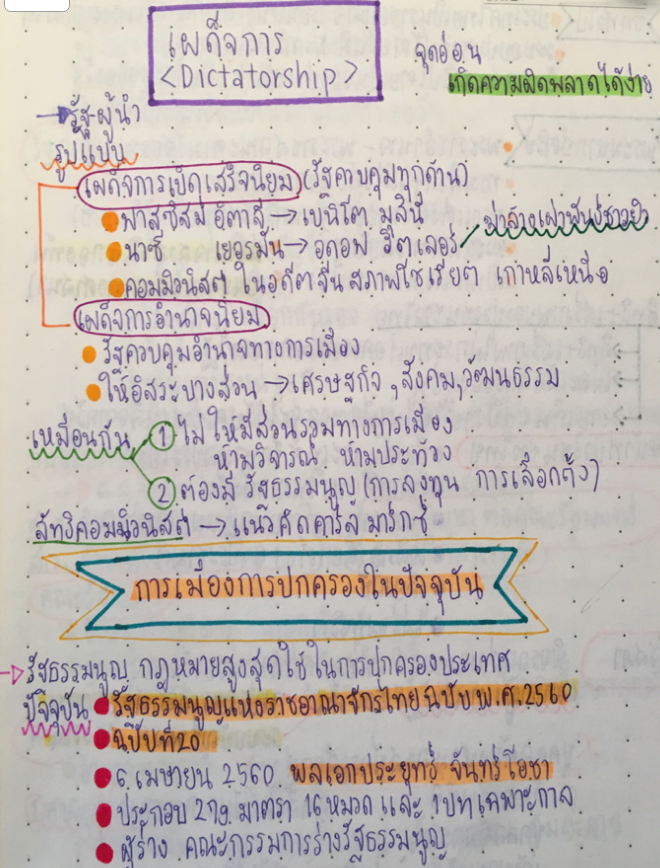 เผด็จการ
<Dictatorship>
จุดอ่อน
เกิดความผิดพลาดได้ง่าย
รัฐ-ผู้นำ
รูปแบบ
เผด็จการเบ็ดเสร็จนิยม (รัฐควบคุมทุกด้าน)
ฟาสซิสม์ อิตาลี → เบนิโต มุสโสลินี
นาซี เยอรมัน → อดอฟ ฮิตเลอร์ ฆ่าล้างเผ่าพันธุ์ชาวยิว
คอมมิวนิสต์ ในอดีตจีน สหภาพโซเวียต เกาหลีเหนือ
เผด็จการอำนาจนิยม
รัฐควบคุมอำนาจทางการเมือง
ให้อิสระบางส่วน → เศรษฐกิจ, สังคม, วัฒนธรรม
เหมือนกัน ① ไม่ให้มีส่วนร่วมทางการเมือง
ห้ามวิจารณ์ ห้ามประท้วง
② ต้องมี รัฐธรรมนูญ (การลงทุน การเลือกตั้ง)
ลัทธิคอมมิวนิสต์ → แนวคิดคาร์ล มาร์กซ์
การเมืองการปกครองในปัจจุบัน
รัฐธรรมนูญ กฎหมายสูงสุดใช้ในการปกครองประเทศ
ปัจจุบัน รัฐธรรมนูญแห่งราชอาณาจักรไทย ฉบับ พ.ศ. 2560
ฉบับที่ 20
6 เมษายน 2560 พลเอกประยุทธ์ จันทร์โอชา
ประกอบ 279 มาตรา 16 หมวด และ 1 บทเฉพาะกาล
ผู้ร่าง คณะกรรมการร่างรัฐธรรมนูญ